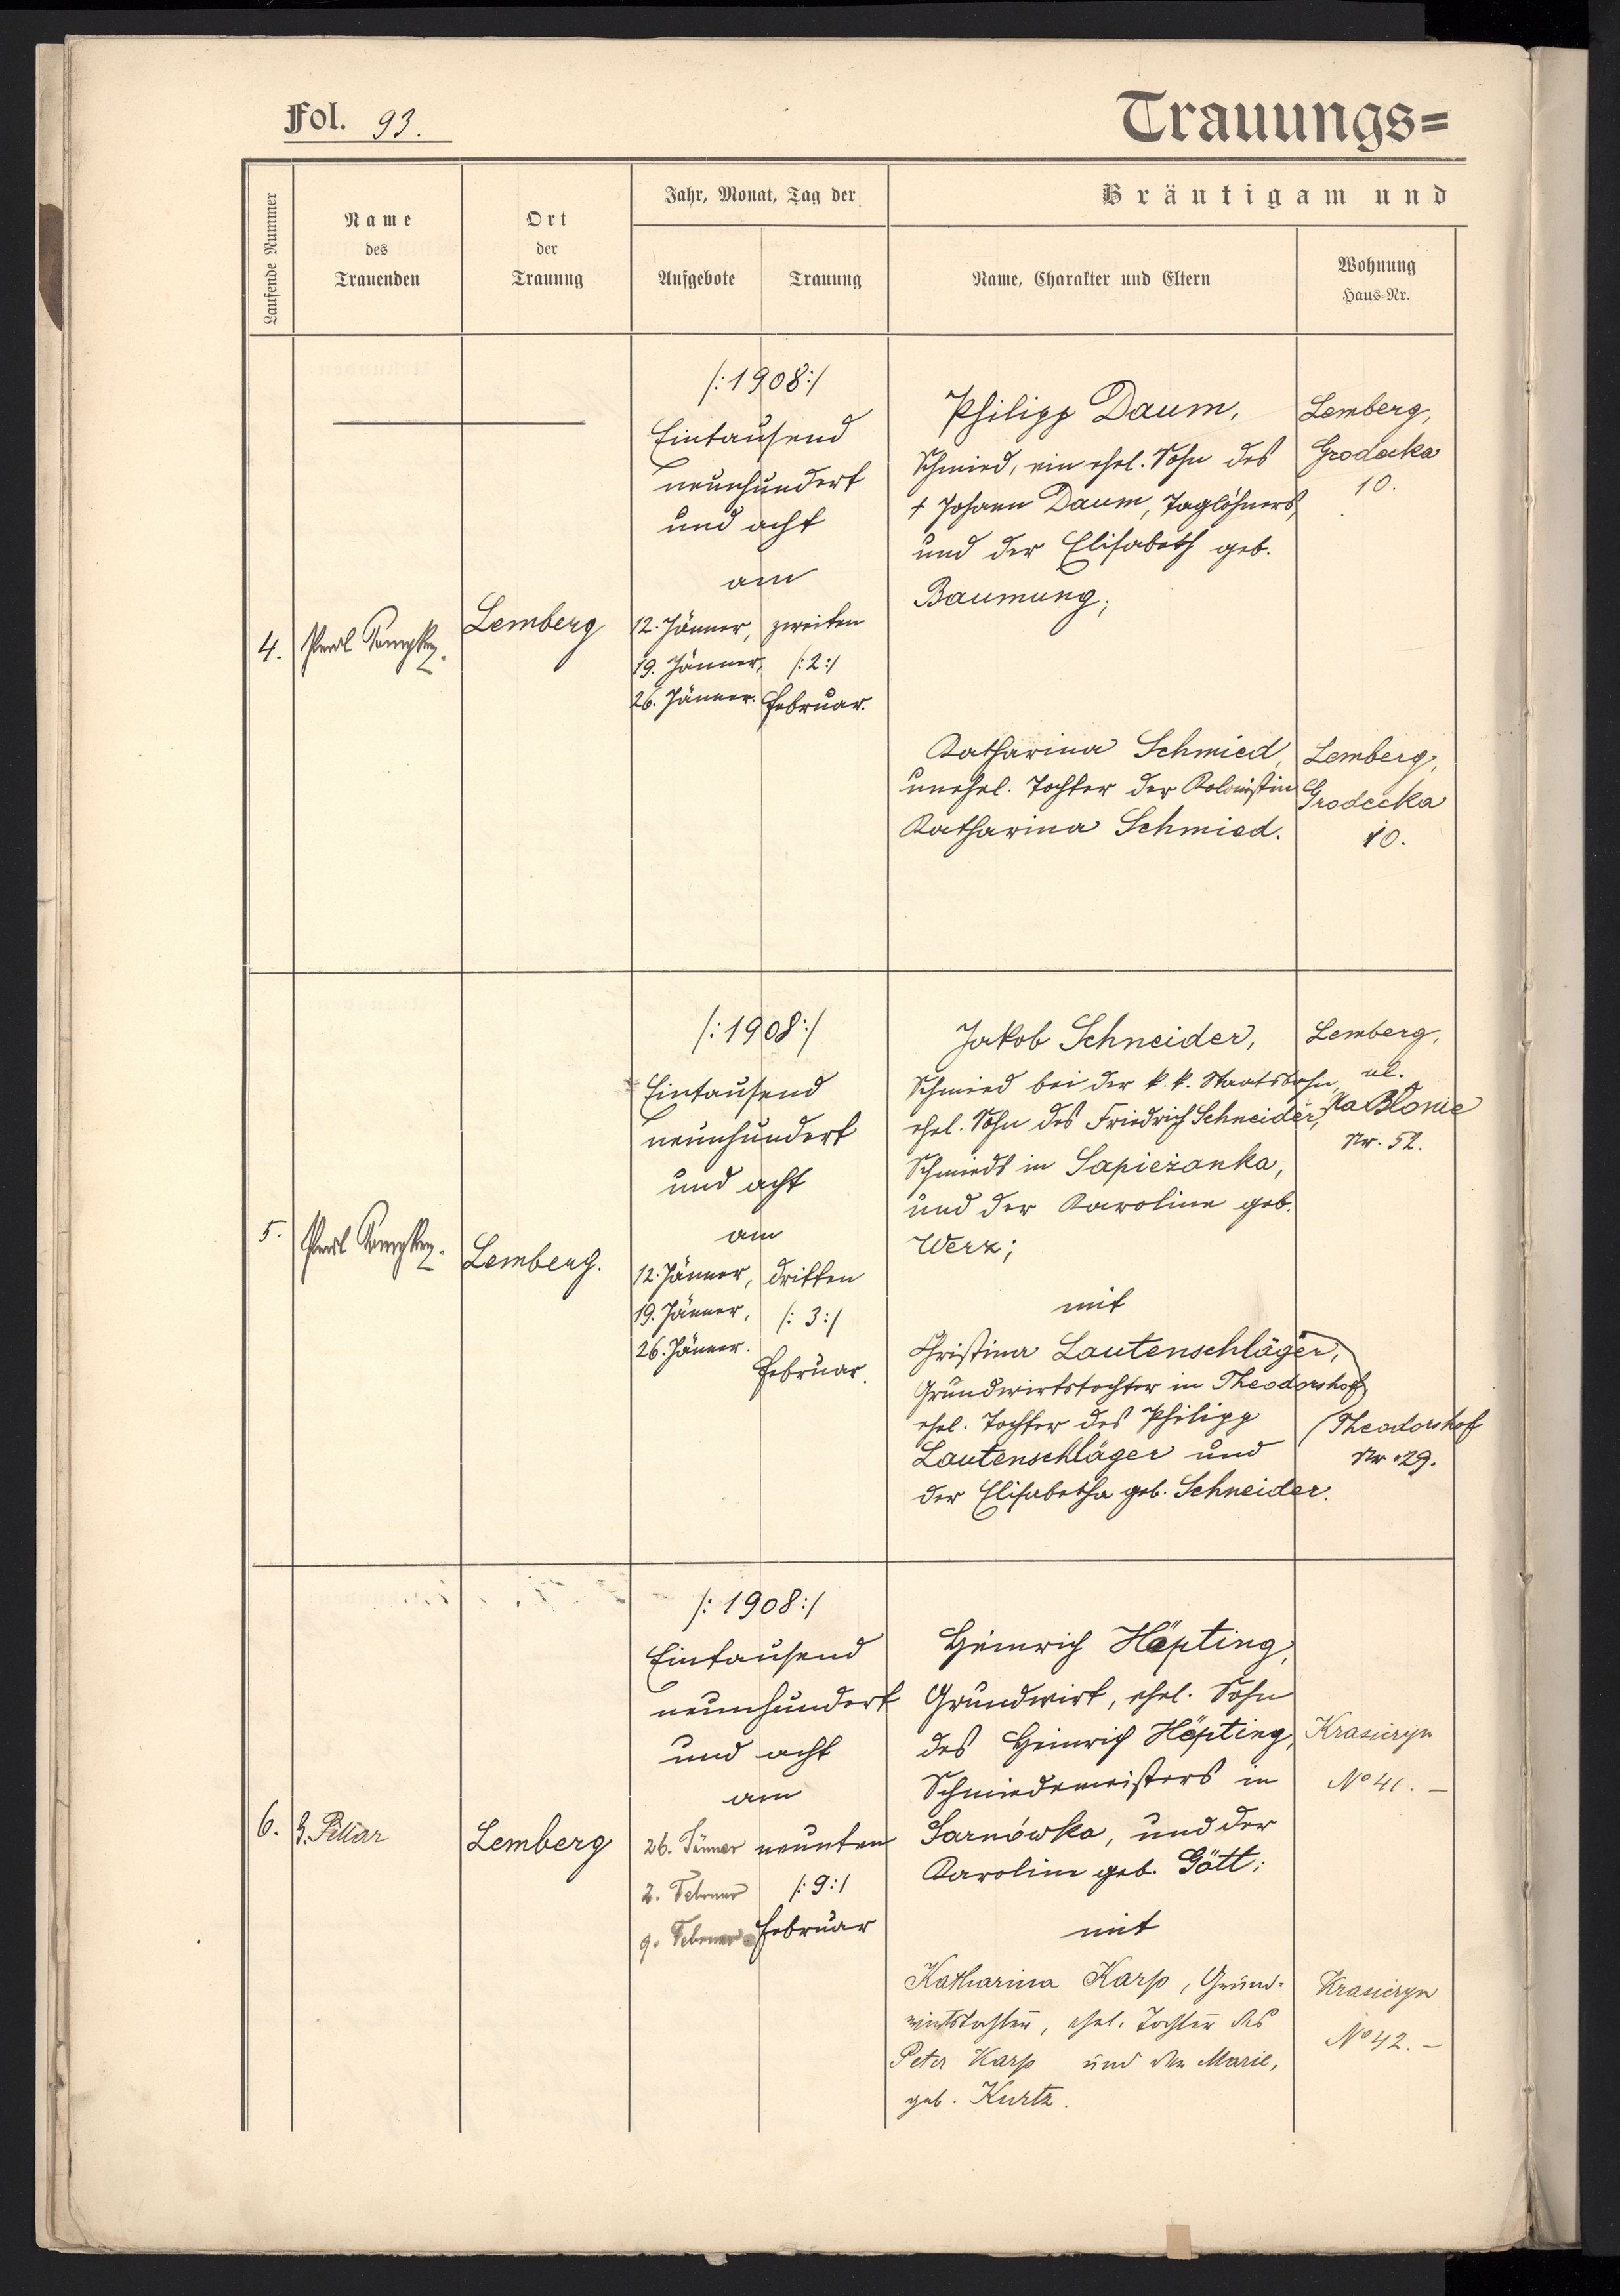 Fol. 93.
Trauungs=
Laufende Nummer
Name
des
Trauenden
Ort
der
Trauung
Jahr, Monat, Tag der
Aufgebote
Trauung
Bräutigam und
Name, Charakter und Eltern
Wohnung
Haus-Nr.
4.
Lemberg
/:1908:/
Eintausend
neunhundert
und acht
am
12. Jänner,
19. Jänner,
26. Jänner.
zweiten
/:2:/
Februar.
Philipp Daum,
Schmied, ein ehel. Sohn des
† Johann Daum, Taglöhners,
und der Elisabeth geb.
Baumung;
Lemberg,
Grodecka
10.
Katharina Schmied,
unehel. Tochter der Kolonistin
Katharina Schmied.
Lemberg,
Grodecka
10.
5.
Lemberg.
/:1908:/
Eintausend
neunhundert
und acht
am
12. Jänner,
19. Jänner,
26. Jänner.
dritten
/:3:/
Februar.
Jakob Schneider,
Schmied bei der k. k. Staatsbahn,
ehel. Sohn des Friedrich Schneider,
Schmieds in Sapieżanka,
und der Karoline geb.
Werz;
Lemberg,
ul.
Na Blonie
Nr. 52.
mit
Christina Lautenschläger,
Grundwirtstochter in Theodorshof,
ehel. Tochter des Philipp
Lautenschläger und
der Elisabetha geb. Schneider.
Theodorshof
Nr. 29.
6.
Lemberg
/:1908:/
Eintausend
neunhundert
und acht
am
26. Jänner
2. Februar
9. Februar
neunten
/:9:/
Februar
Heinrich Höpting,
Grundwirt, ehel. Sohn
des Heinrich Höpting,
Schmiedemeisters in
Sarnówka, und der
Karolin geb. Gött;
Krasiczyn
No 41. –
mit
Katharina Karp, Grund-
wirtstochter, ehel. Tochter des
Peter Karp und der Marie,
geb. Kurtz.
Krasiczyn
No 42. –